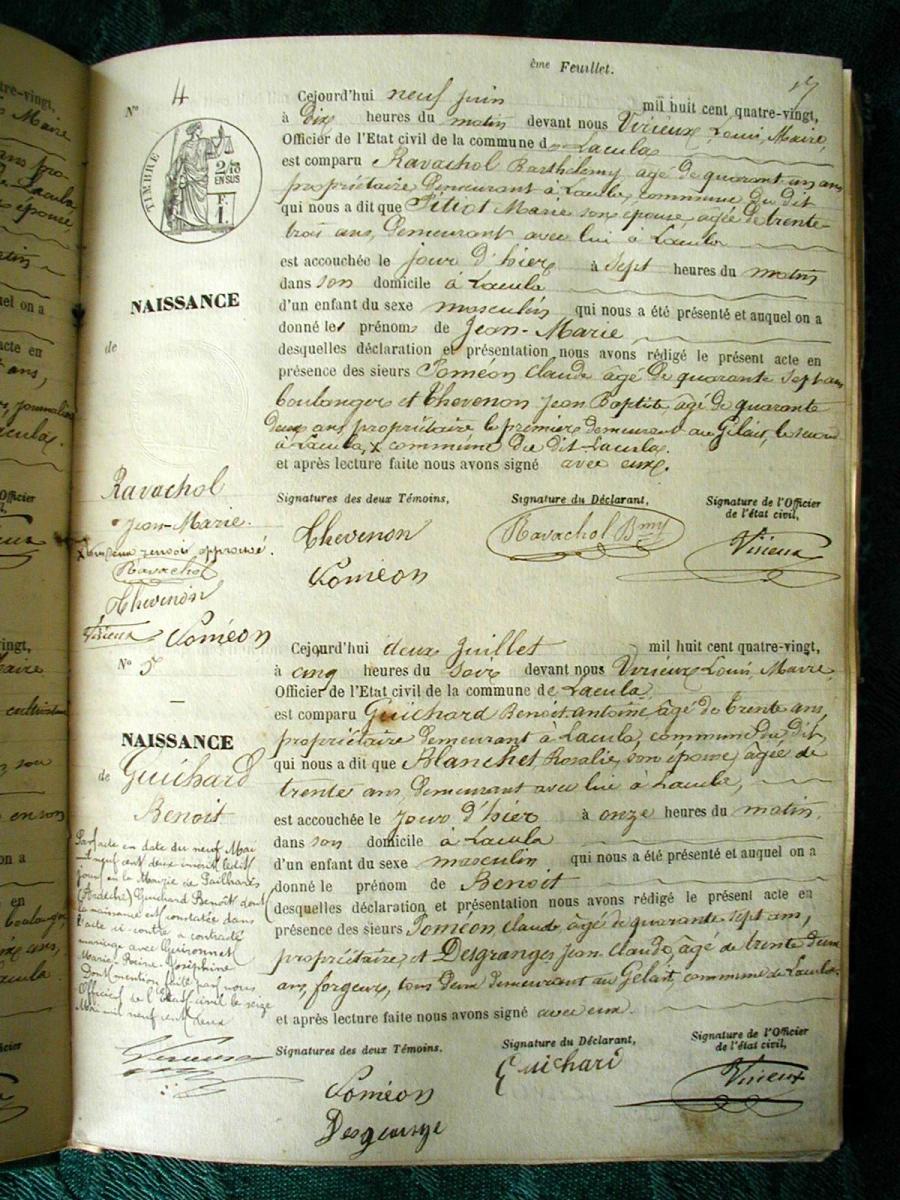 ème Feuillet.
17
N° 4
TIMBRE
2/10
EN SUS
F.
1.
Cejourd'hui neuf juin mil huit cent quatre-vingt,
à dix heures du matin devant nous Virieux Louis, Maire,
Officier de l'Etat civil de la commune de Lacula
est comparu Ravachol Barthelemy âgé de quarant un ans
propriétaire demeurant à Lacula, commune du dit
qui nous a dit que Pitiot Marie son épouse agée de trente
trois ans, demeurant avec lui à Lacula
est accouchée le jour d'hier à sept heures du matin
dans son domicile à Lacula
d'un enfant du sexe masculin qui nous a été présenté et auquel on a
donné les prénoms de Jean-Marie
desquelles déclaration et présentation nous avons rédigé le présent acte en
présence des sieurs Poméon Claude âgé de quarante sept ans
boulanger et Thevenon Jean Baptiste, agé de quarante
deux ans propriétaire le premier demeurant au Gelait, le second
à Lacula, x commune du dit Lacula.
et après lecture faite nous avons signé avec eux.
NAISSANCE
de
Ravachol
Jean-Marie.
renvoi approuvé.
Ravachol
Thevenon
Virieux Poméon
Signatures des deux Témoins. Signature du Déclarant, Signature de l'Officier
de l'état civil,
Thevenon Ravachol Bmy Virieux
Poméon
N° 5
Cejourd'hui deux Juillet mil huit cent quatre-vingt,
à cinq heures du soir devant nous Virieux Louis, Maire,
Officier de l'Etat civil de la commune de Lacula
est comparu Guichard Benoit antoine âgé de trente ans,
propriétaire demeurant à Lacula, commune du dit,
qui nous a dit que Blanchet Rosalie, son épouse, âgée de
trente ans, demeurant avec lui à Lacula,
est accouchée le jour d'hier à onze heures du matin,
dans son domicile à Lacula
d'un enfant du sexe masculin qui nous a été présenté et auquel on a
donné le prénom de Benoit
desquelles déclaration et présentation nous avons rédigé le présent acte en
présence des sieurs Poméon, Claude, âgé de quarante sept ans,
propriétaire, et Desgranges Jean Claude, âgé de trente deux
ans, forgeur, tous deux demeurant au Gelait, commune de Lacula.
et après lecture faite nous avons signé avec eux.
NAISSANCE
de Guichard
Benoit
Par acte en date du neuf Mai
mil neuf cent deux inscrit le dit
jour en la Mairie de Pailharès
(Ardèche) Guichard Benoit dont
la naissance est constatée dans
l'acte ci-contre a contracté
mariage avec Guironnet
Marie-Rosine-Joséphine
Dont mention faite par nous
Officier de l'Etat civil le seize
Mai mil neuf cent deux
Virieux
Signatures des deux Témoins. Signature du Déclarant, Signature de l'Officier
de l'état civil,
Poméon Guichard Virieux
Desgrange